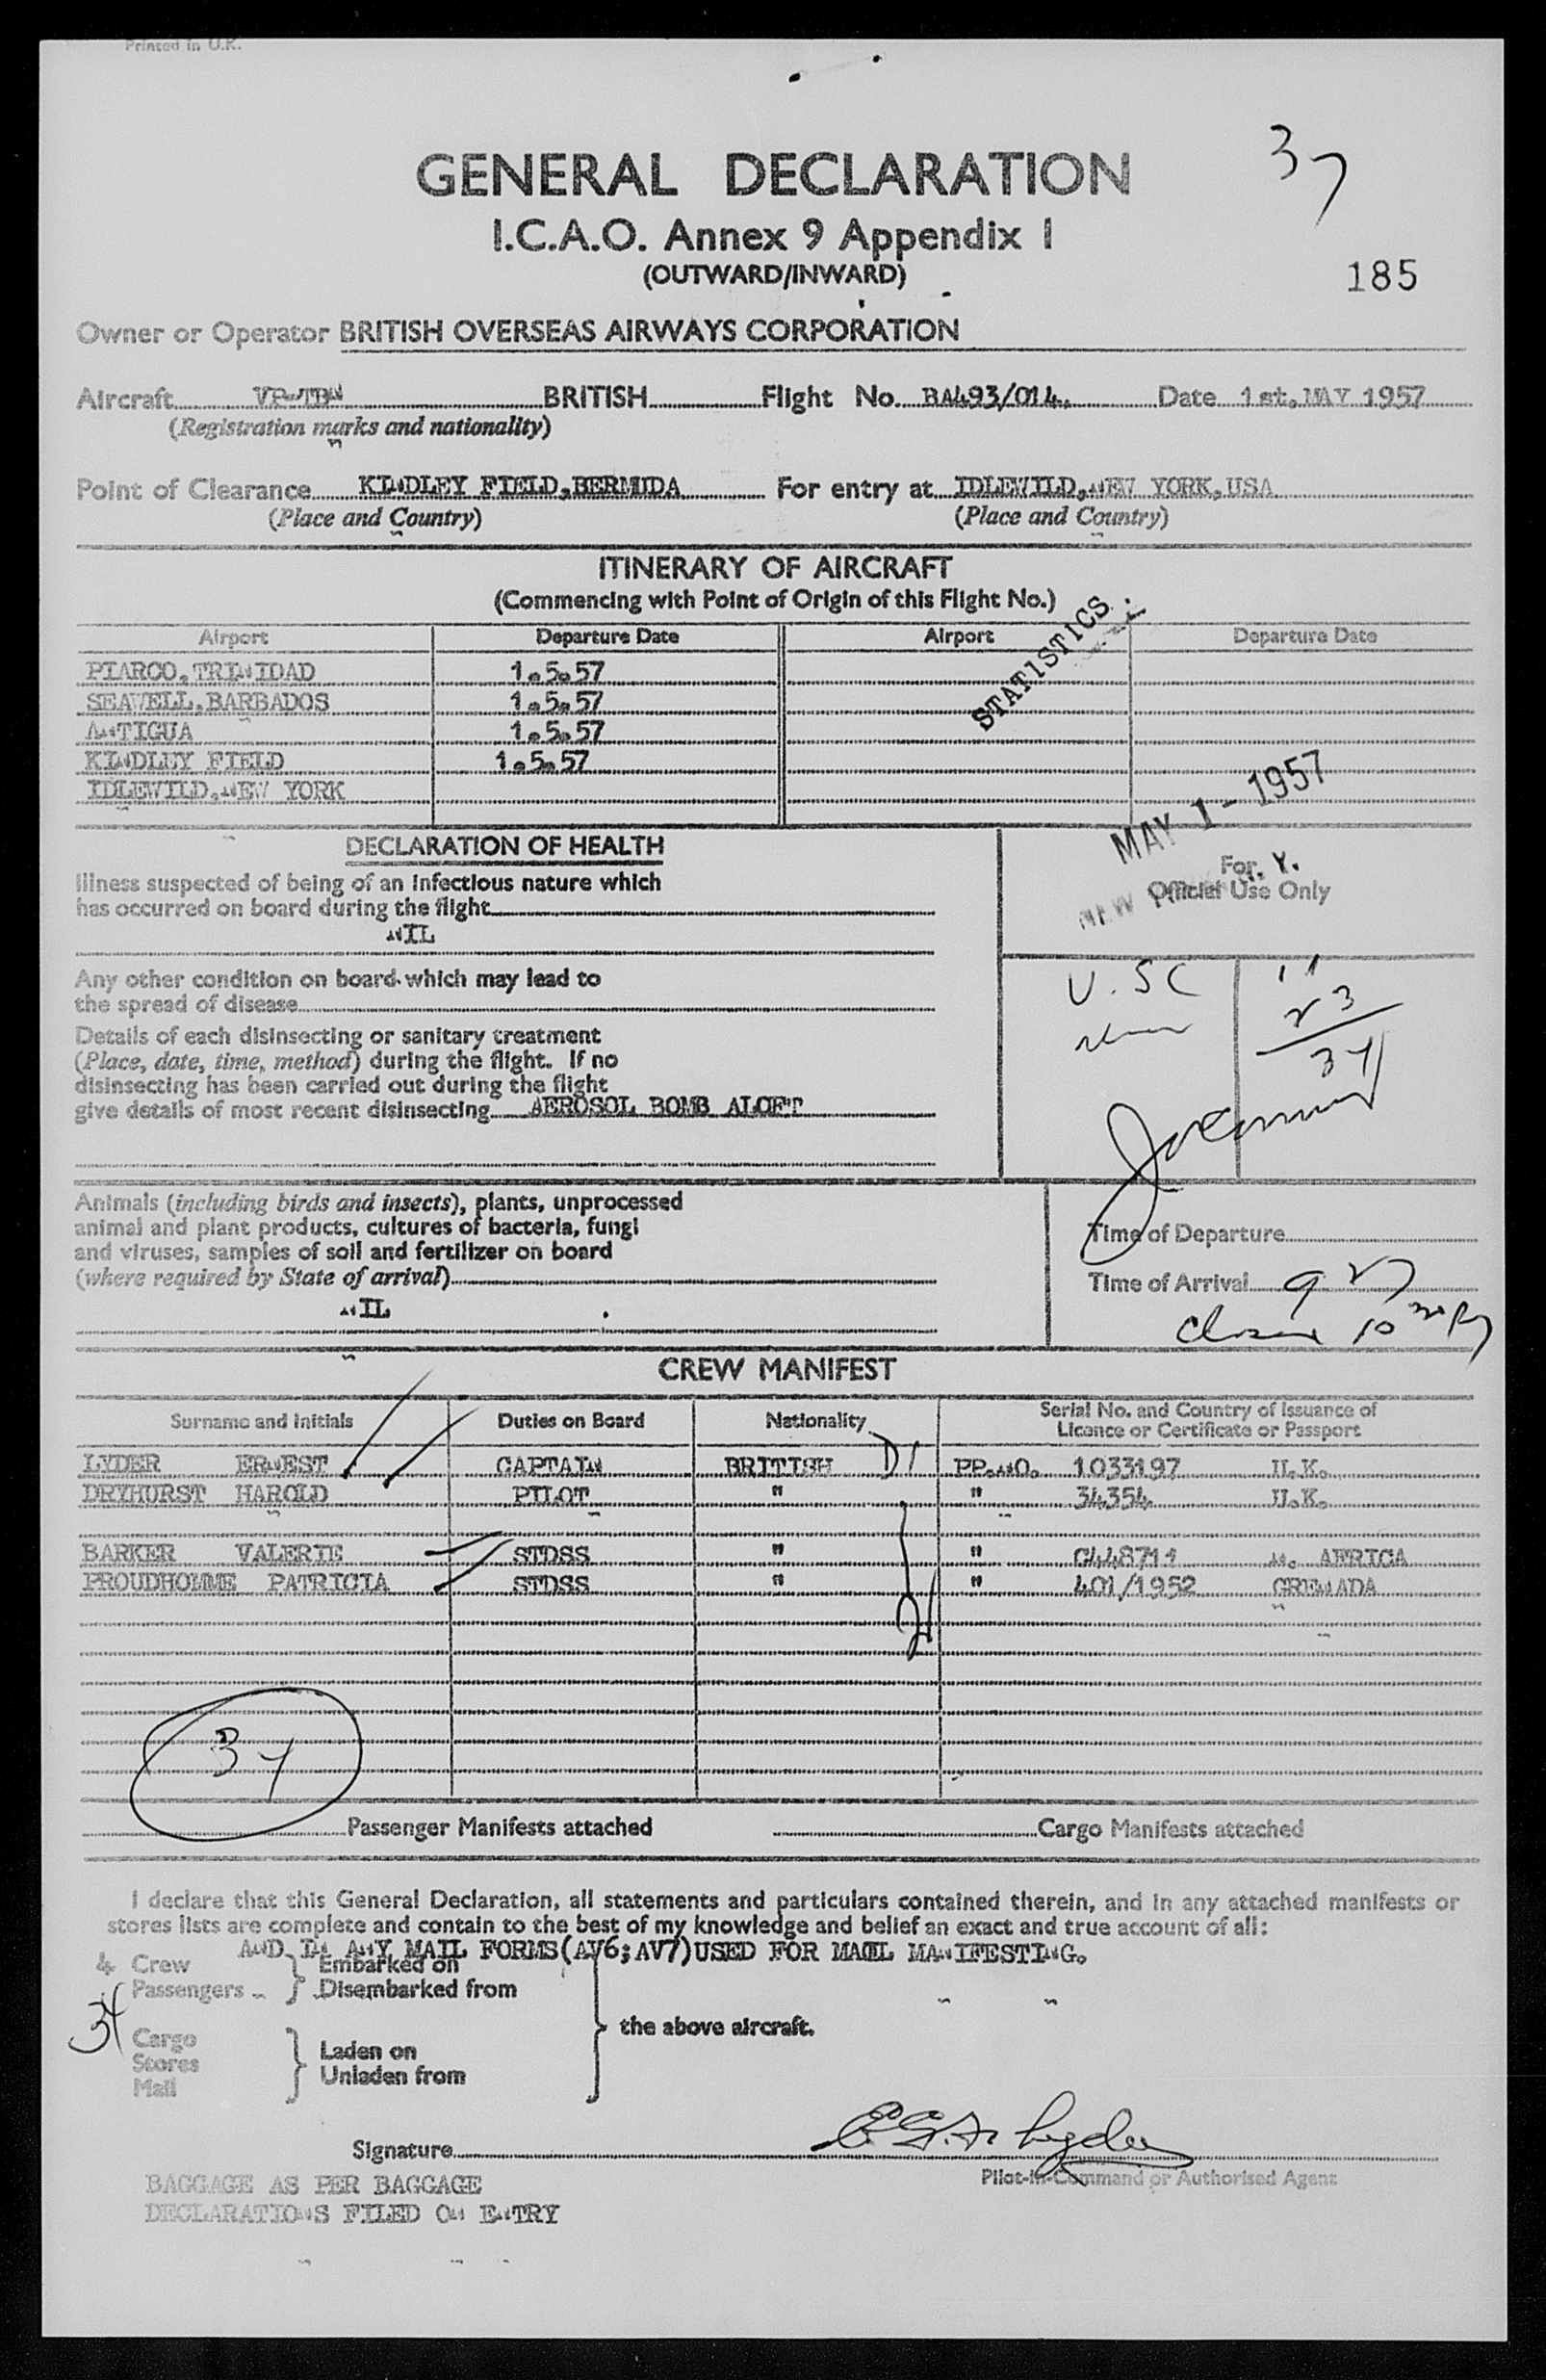 Printed in U.K.
37
GENERAL DECLARATION
I.C.A.O. Annex 9 Appendix 1
(OUTWARD/INWARD)
185
Owner or Operator BRITISH OVERSEAS AIRWAYS CORPORATION
Aircraft VP-TBN BRITISH Flight No. BA493/014. Date 1st. MAY 1957
(Registration marks and nationality)
Point of Clearance KINDLEY FIELD, BERMUDA For entry at IDLEWILD, NEW YORK, USA
(Place and Country) (Place and Country)
ITINERARY OF AIRCRAFT
(Commencing with Point of Origin of this Flight No.)
Airport Departure Date Airport Departure Date
STATISTICS
PIARCO, TRINIDAD 1.5.57
SEAWELL, BARBADOS 1.5.57
ANTIGUA 1.5.57
KINDLEY FIELD 1.5.57
IDLEWILD, NEW YORK
MAY 1 - 1957
NEW N.Y.
DECLARATION OF HEALTH
For
Official Use Only
Illness suspected of being of an infectious nature which
has occurred on board during the flight
NIL
Any other condition on board which may lead to
the spread of disease
U.SC 11
23
34
Details of each disinsecting or sanitary treatment
(Place, date, time, method) during the flight. If no
disinsecting has been carried out during the flight
give details of most recent disinsecting AEROSOL BOMB ALOFT
Animals (including birds and insects), plants, unprocessed
animal and plant products, cultures of bacteria, fungi
and viruses, samples of soil and fertilizer on board
(where required by State of arrival)
NIL
Time of Departure
Time of Arrival 927
CREW MANIFEST
Surname and Initials Duties on Board Nationality Serial No. and Country of Issuance of
Licence or Certificate or Passport
LYDER ERNEST CAPTAIN BRITISH D1 PP.NO. 1033197 U.K.
DRYHURST HAROLD PILOT " " 34354 U.K.
BARKER VALERIE STDSS " " C448711 N. AFRICA
PROUDHOMME PATRICIA STDSS " " 401/1952 GRENADA
34
Passenger Manifests attached Cargo Manifests attached
I declare that this General Declaration, all statements and particulars contained therein, and in any attached manifests or
stores lists are complete and contain to the best of my knowledge and belief an exact and true account of all:
AND IN ANY MAIL FORMS(AV6;AV7)USED FOR MAIL MANIFESTING.
4 Crew Embarked on
34 Passengers Disembarked from
the above aircraft.
Cargo
Stores
Mail
Laden on
Unladen from
Signature
Pilot-in-Command or Authorised Agent
BAGGAGE AS PER BAGGAGE
DECLARATIONS FILED ON ENTRY